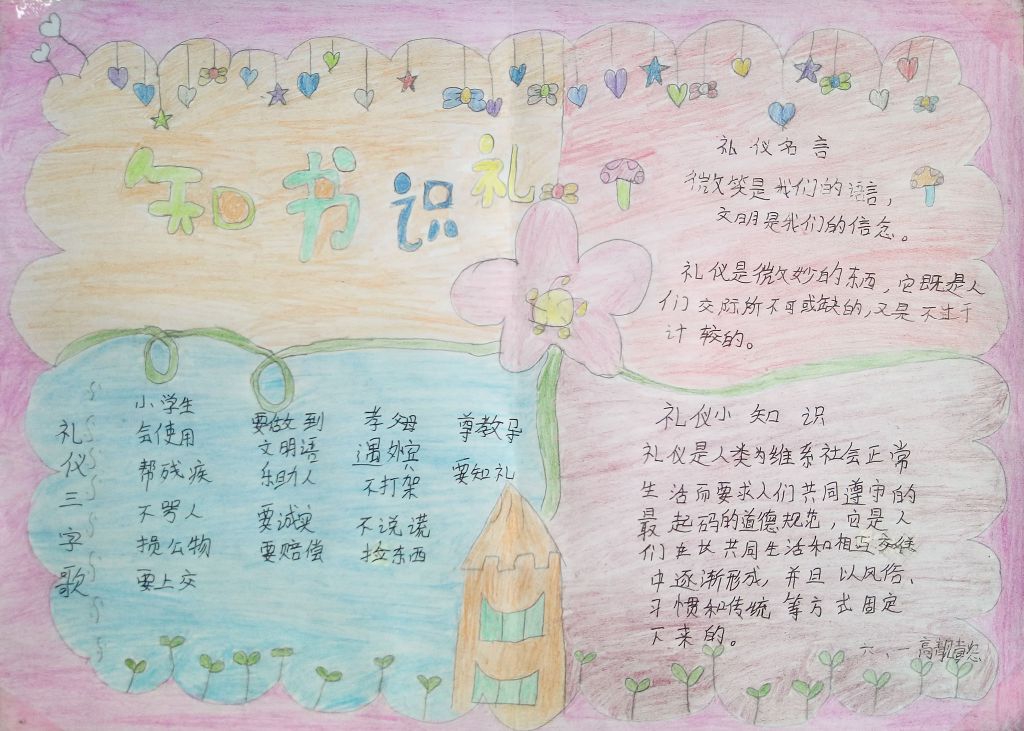 知书识礼
礼仪名言
微笑是我们的语言,
文明是我们的信念。
礼仪是微妙的东西,它既是人
们交际所不可或缺的,又是不过于
计较的。
礼仪三字歌
小学生 要做到 孝父母 尊教导
会使用 文明语 遇外宾 要知礼
帮残疾 乐助人 不打架
不骂人 要诚实 不说谎
损公物 要赔偿 捡东西
要上交
礼仪小知识
礼仪是人类为维系社会正常
生活而要求人们共同遵守的
最起码的道德规范,它是人
们在长共同生活和相互交往
中逐渐形成,并且以风俗、
习惯和传统等方式固定
下来的。
六、一